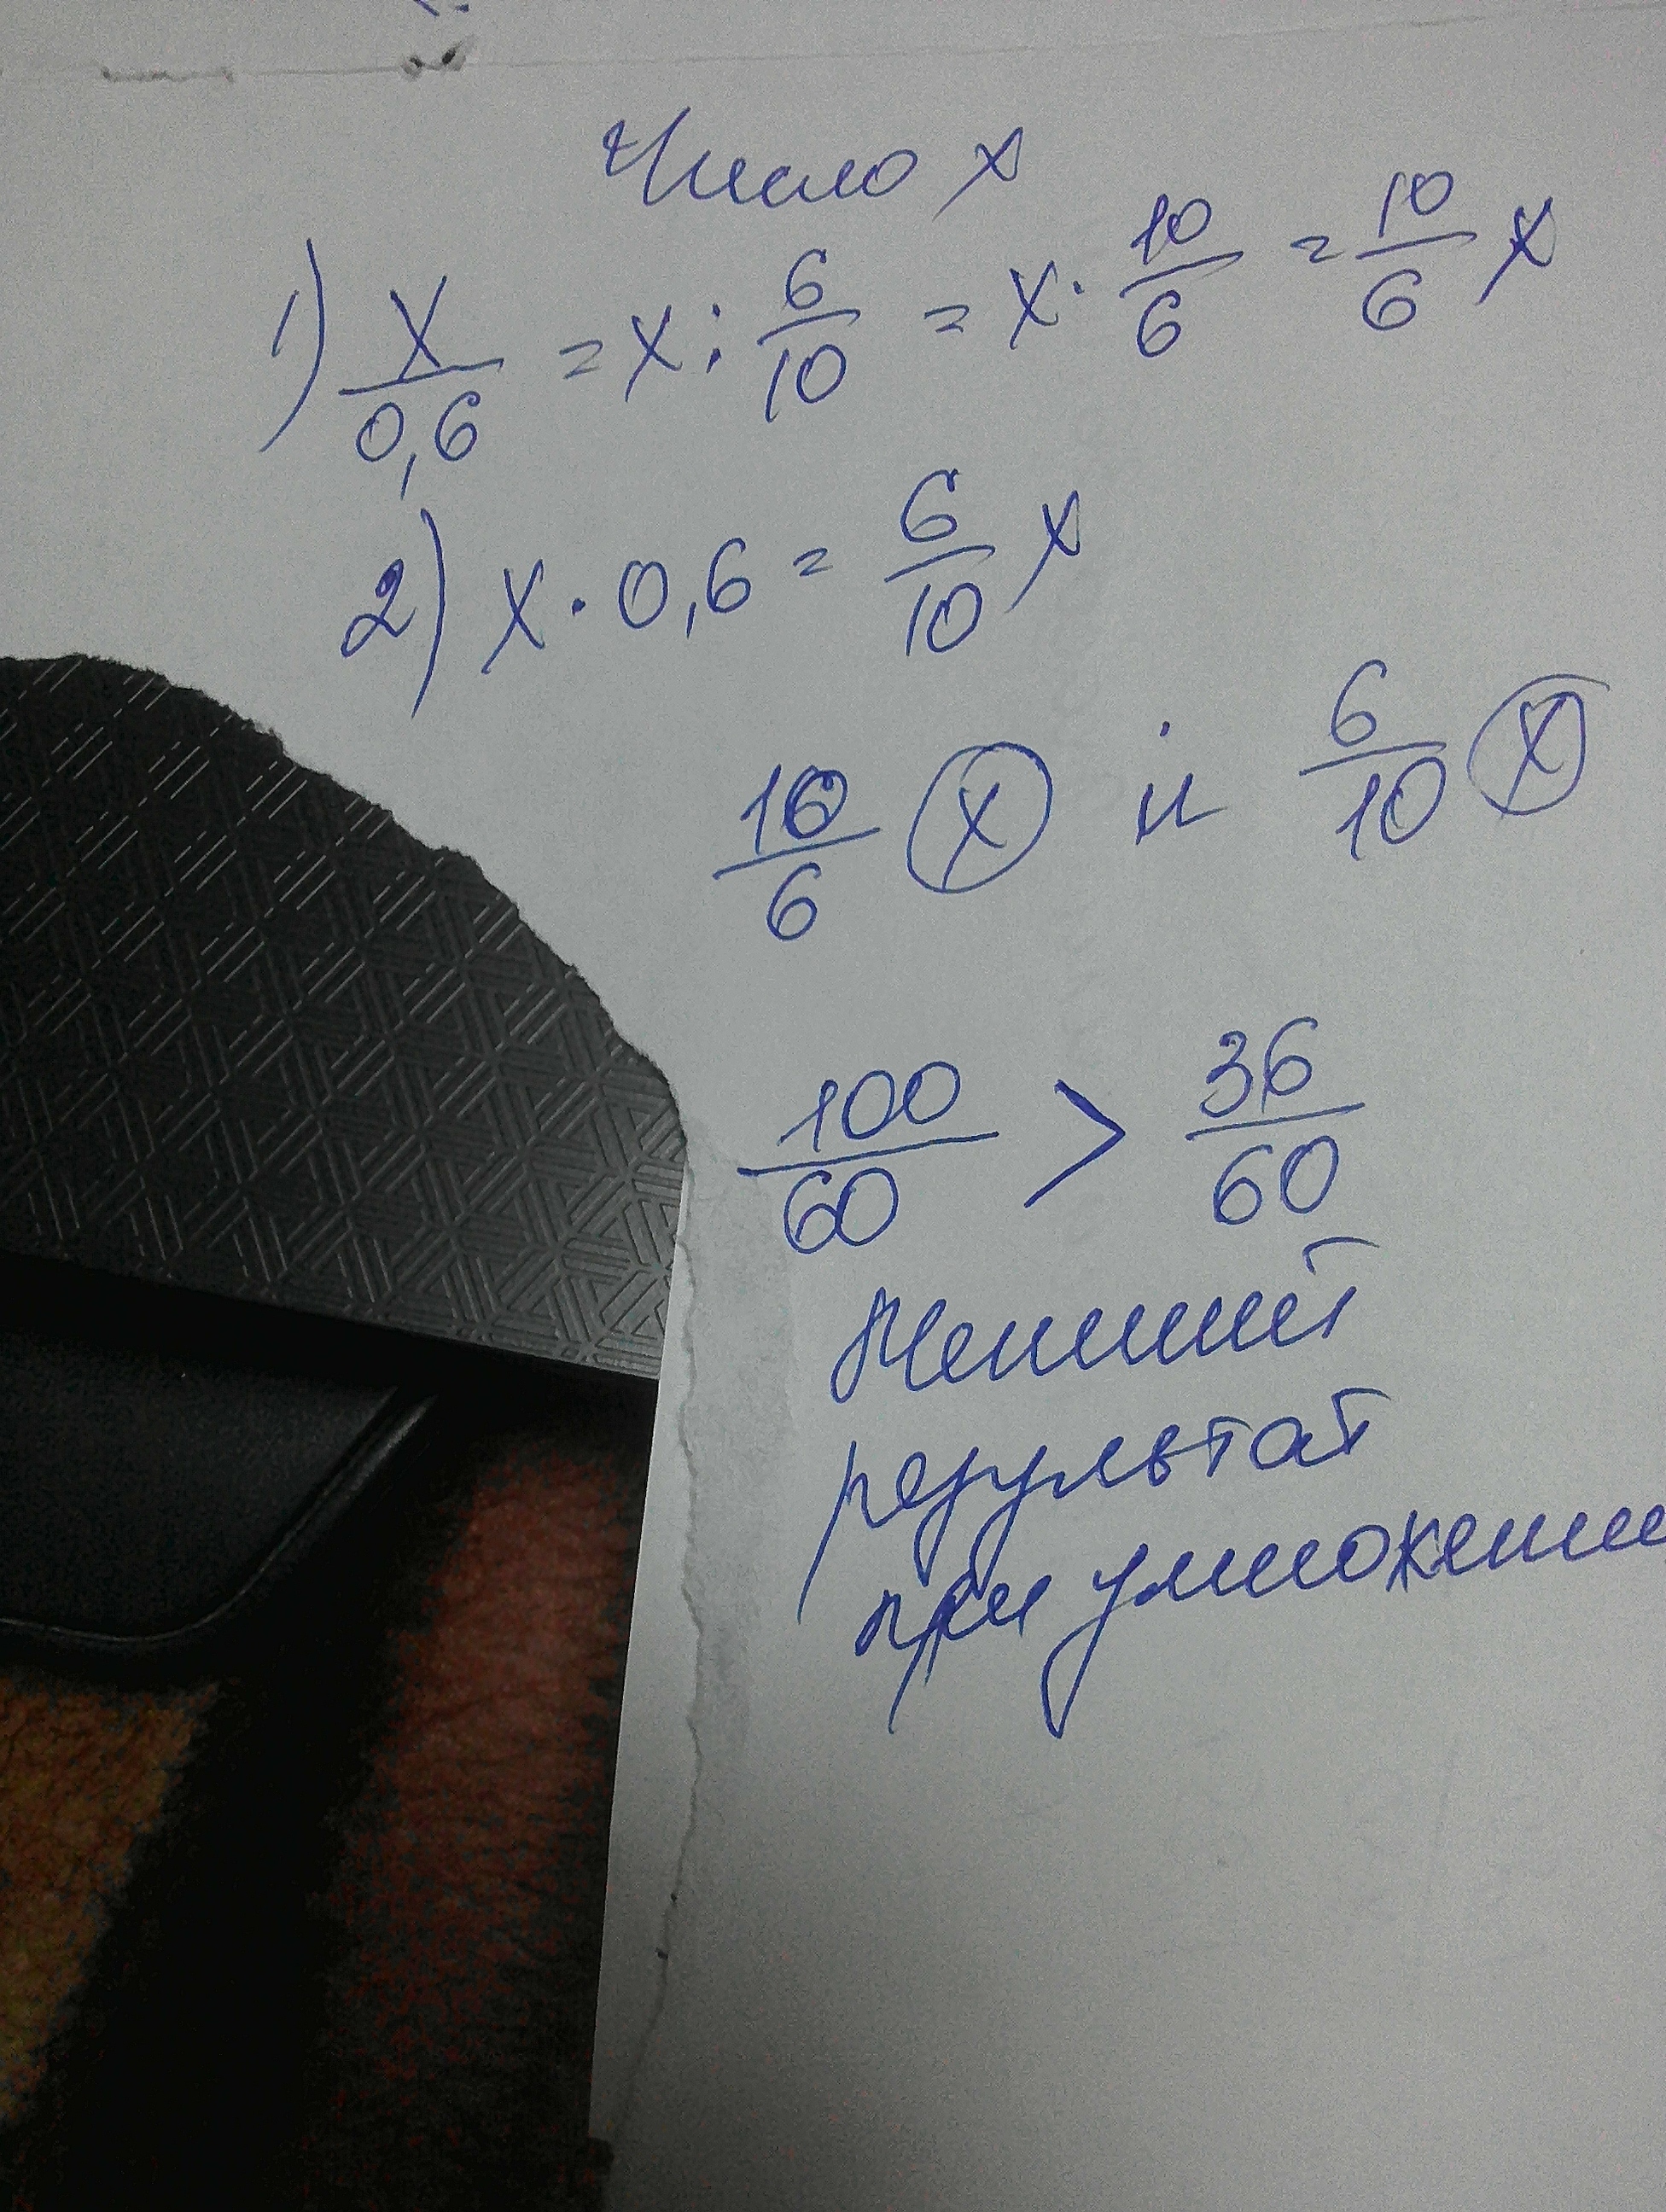 Число x
1) x/0,6 = x : 6/10 = x · 10/6 = 10/6 x
2) x · 0,6 = 6/10 x
10/6 x и 6/10 x
100/60 > 36/60
Менший
результат
при умножении